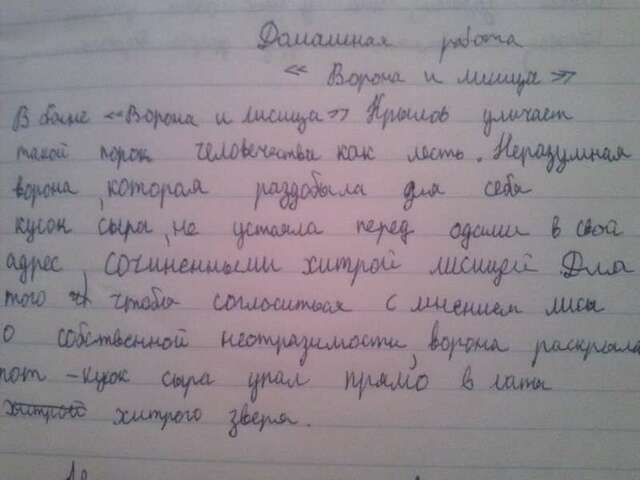 Домашная работа
« Ворона и лисица »
В басне «Ворона и лисица» Крылов уличает
такой порок человечества как лесть. Неразумная
ворона, которая раздобыла для себя
кусок сыра, не устояла перед одами в свой
адрес, сочиненными хитрой лисицей. Для
того ч чтобы согласиться с мнением лисы
о собственной неотразимости, ворона раскрыла
рот - кусок сыра упал прямо в лапы
хитрой хитрого зверя.